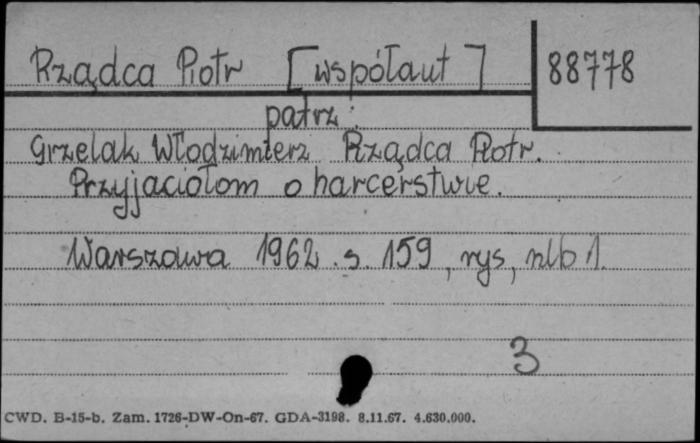 Rządca Piotr [współaut] 88778
patrz:
Grzelak Włodzimierz Rządca Piotr.
Przyjaciołom o harcerstwie.
Warszawa 1962. s. 159, rys, nlb 1.
3
CWD. B-15-b. Zam. 1726-DW-On-67. GDA-3198. 8.11.67. 4.630.000.